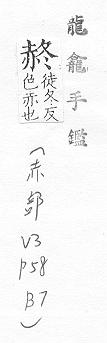 龍龕手鑑
徒冬反
色赤也
(赤部
V3
P58
B7)